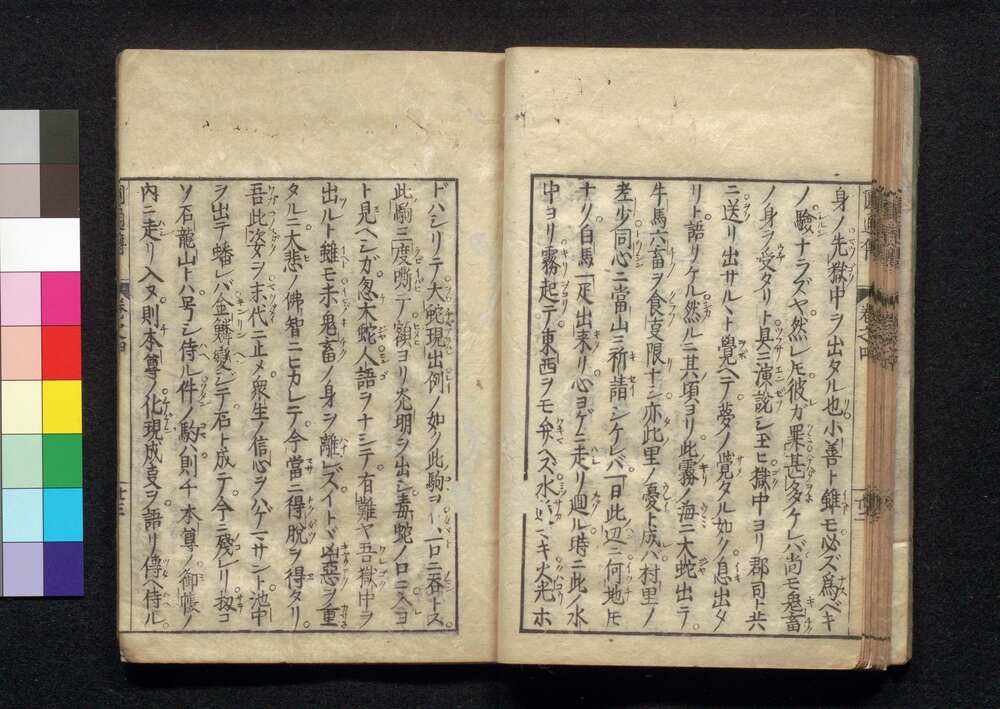 身ノ先獄中ヲ出タル也小善ト雖モ必ズ為ベキ
ノ驗ナラズヤ然レ𪜈彼ガ罪甚タケレバ尚モ鬼畜
ノ身ヲ受タリト具ニ演説シ玉ヒ獄中ヨリ郡司ト共
ニ送リ出サルヽト覺ヘテ夢ノ覚タル如ク息出タ
リト語リケル然ルニ其頃ヨリ此霧ノ海ニ大蛇出テ
牛馬六畜ヲ食亥限ナシ亦此里ノ憂ト成バ村里ノ
老少同心ニ當山ニ祈請シケレバ一日此辺ニ何地𪜈
ナク白馬一疋出来リ心ヨゲニ走リ廻ル時ニ此ノ水
中ヨリ霧起テ東西ヲモ弁ヘズ水 ヒキ火光ホ
ドハシリテ大蛇現出例ノ如ク此駒ヲ 一口ニ呑トス
此駒三度嘶テ額ヨリ光明ヲ出シ毒蛇ノ口ニ入ヨ
ト見ヘシガ忽大蛇人語ヲナシテ有難ヤ吾獄中ヲ
出ルト雖モ未鬼畜ノ身ヲ離レズイトド凶惡ヲ重
タルニ大悲ノ佛智ニヒカレテ今當ニ得脱ヲ得タリ
吾此姿ヲ末代ニ止メ衆生ノ信心ヲハゲマサント池中
ヲ出テ蟠レバ金鱗變シテ石ト成テ今ニ殘レリ扨コ
ソ石龍山トハ号シ侍ル件ノ駒ハ則チ本尊ノ御帳ノ
内ニ走リ入ヌ則本尊ノ化現成亥ヲ語リ傳ヘ侍ル